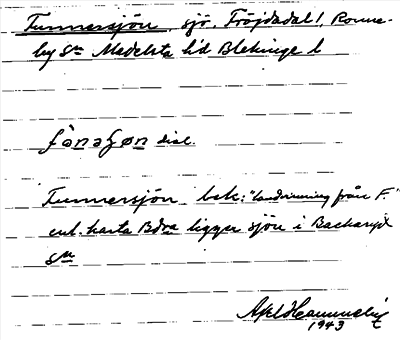 Funnersjön, sjö, Fröjdadal!, Ronne-
by Sn Medelsta hd Blekinge l
dial.
Funnersjön bek: "landvinning från F."
enl. karta Bdra ligger sjön i Backaryd
Sn
Axel
1943